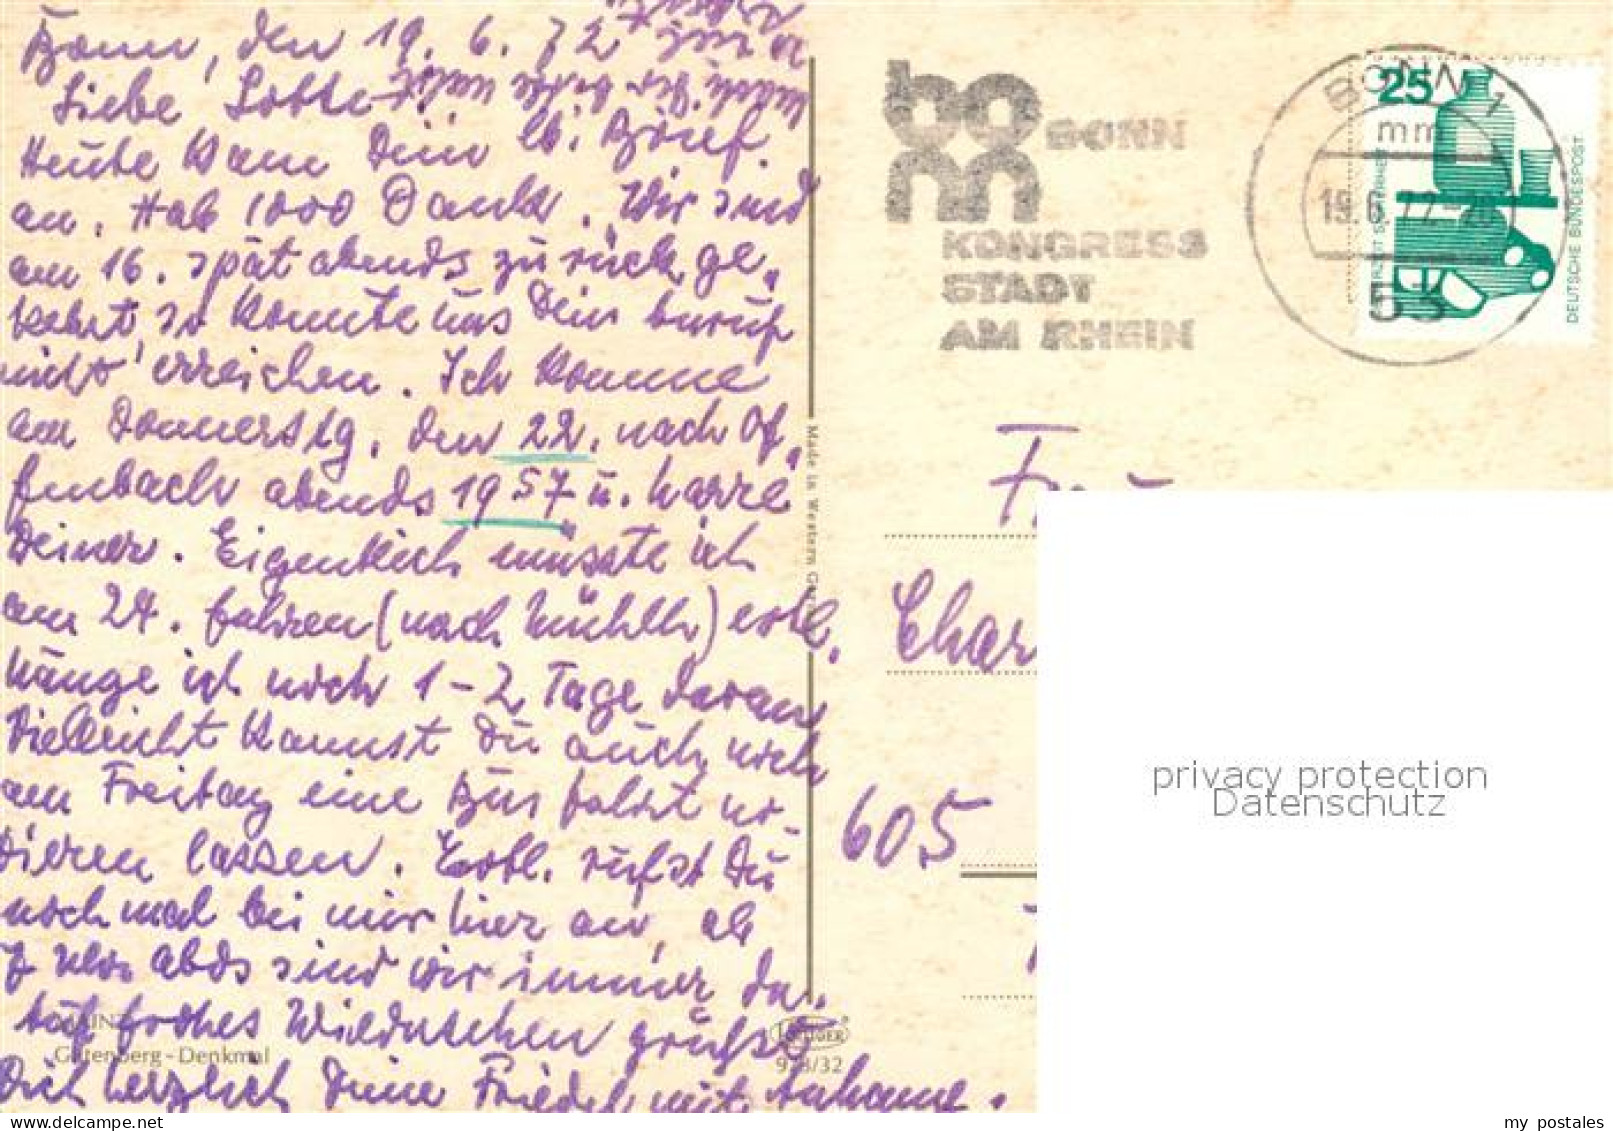 Bonn, den 19. 6. 72
Liebe Lotte
Heute kam Dein lb. Brief
an. Hab 1000 Dank. Wir sind
am 16. spät abends zurück ge-
kehrt, so konnte uns Dein Anruf
nicht erreichen. Ich komme
am Donnerstg. den 22. nach Of-
fenbach abends 19 57 u. harre
Deiner. Eigentlich müsste ich
am 24. fahren (nach Mühlh) evtl.
hänge ich noch 1-2 Tage daran
Vielleicht kannst Du auch noch
am Freitag eine Bus fahrt no-
tieren lassen. Evtl. rufst Du
noch mal bei mir hier an, ab
7 Uhr abds sind wir immer da.
Auf frohes Wiedersehen grüßt
Dich herzlich Deine Friedel mit Anhang.
MAINZ
Gutenberg-Denkmal
KRÜGER
928/32
Made in Western Ger
BONN
KONGRESS
STADT
AM RHEIN
BONN 1
mm
19.6.72-20
53
25
DEUTSCHE BUNDESPOST
Frau
Char
605
privacy protection
Datenschutz
www.delcampe.net
my_postales